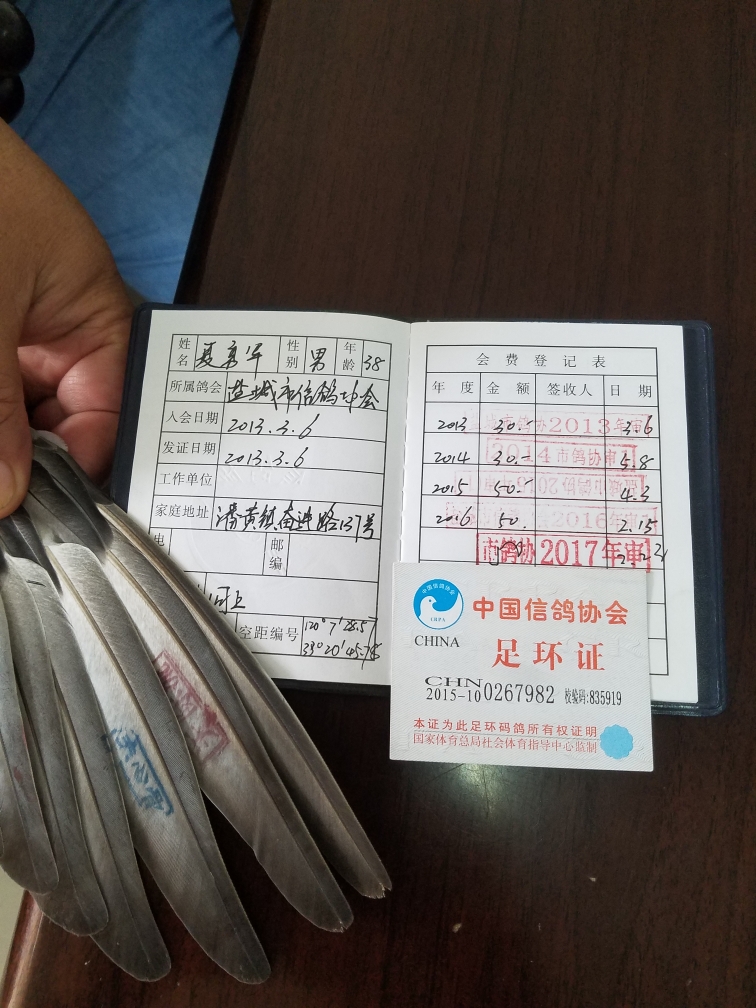 姓名 夏京军 性别 男 年龄 38
所属鸽会 盐城市信鸽协会
入会日期 2013.3.6
发证日期 2013.3.6
工作单位
家庭地址 潘黄镇奋进路137号
邮编
空距编号 120°7′28.57
33°20′45.76
会费登记表
年度 金额 签收人 日期
2013 30.- 2013年审 3.6
2014 30.- 2014市鸽协审 5.8
2015 50.- 4.3
2016 50. 2016年审 2.15
市鸽协2017年审
中国信鸽协会
CHINA
足环证
CHN
2015-10 0267982 校验码:835919
本证为此足环码鸽所有权证明
国家体育总局社会体育指导中心监制